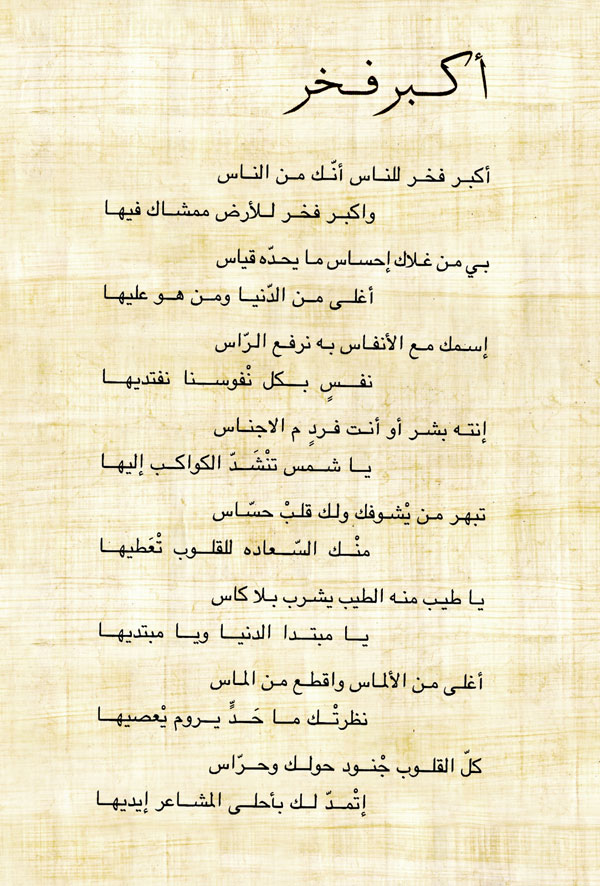 أكبر فخر
أكبر فخر للناس أنّك من الناس
واكبر فخر للأرض ممشاك فيها
بي من غلاك إحساس ما يحدّه قياس
أغلى من الدّنيا ومن هو عليها
إسمك مع الأنفاس به نرفع الرّاس
نفسٍ بكل نْفوسنا نفتديها
إنته بشر أو أنت فردٍ م الاجناس
يا شمس تنْشَدّ الكواكب إليها
تبهر من يْشوفك ولك قلبْ حسّاس
منْك السّعاده للقلوب تْعَطيها
يا طيب منه الطيب يشرب بلا كاس
يا مبتدا الدنيا ويا مبتديها
أغلى من الألماس واقطع من الماس
نظرتْك ما حَدٍّ يروم يْعصيها
كلّ القلوب جْنود حولك وحرّاس
إتْمدّ لك بأحلى المشاعر إيديها